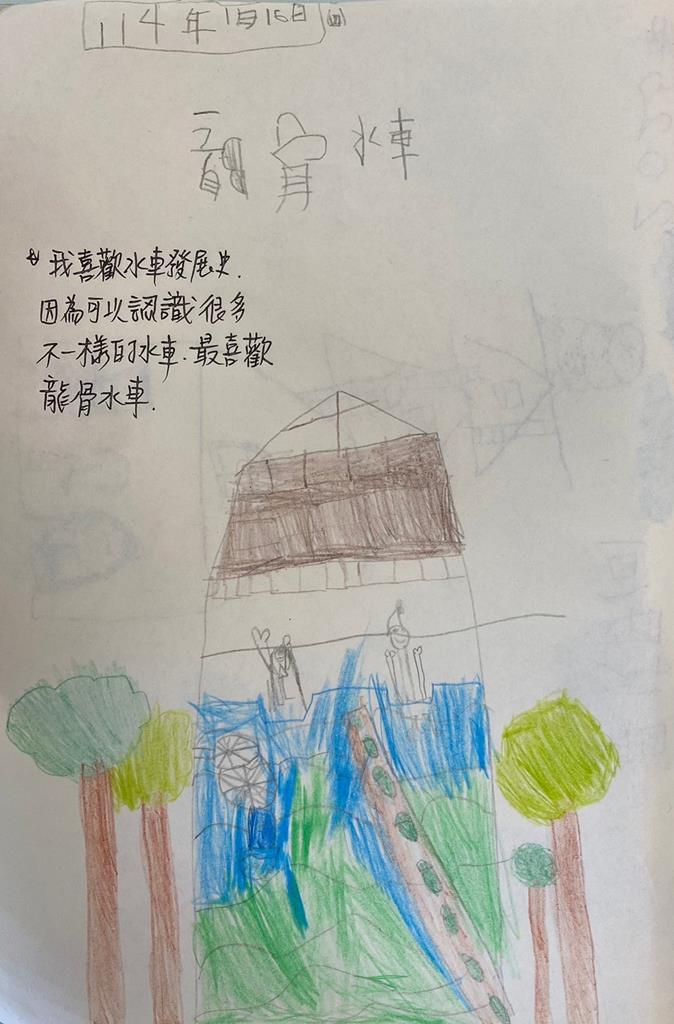 114年1月16日(四)
龍骨水車
我喜歡水車發展史.
因為可以認識很多
不一樣的水車.最喜歡
龍骨水車.